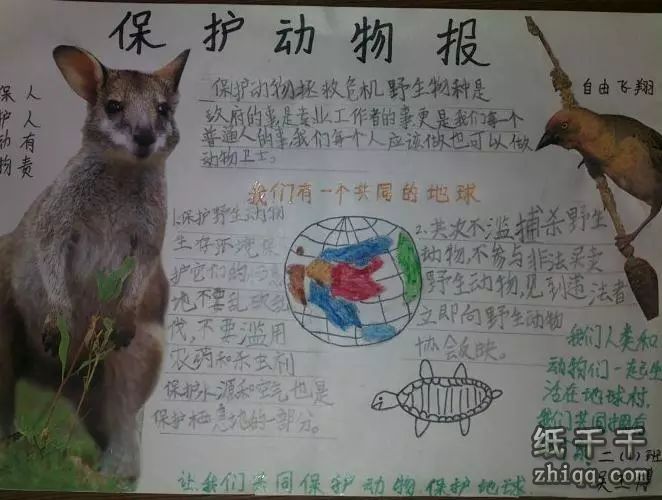 保护动物报
保护动物
人人有责
自由飞翔
保护动物拯救危机野生物种是
政府的事是专业工作者的事更是我们每一个
普通人的事,我们每个人应该做也可以做
动物卫士。
我们有一个共同的地球
1.保护野生动物
生存环境保
护它们的栖息
地,不要乱砍乱
伐,不要滥用
农药和杀虫剂
保护水源和空气也是
保护栖息地的一部分。
2.共次不滥捕杀野生
动物,不参与非法买卖
野生动物,见到违法者
立即向野生动物
协会反映。
我们人类和
动物们一起生
活在地球村,
我们共同拥有
二(4)班
让我们共同保护动物保护地球
纸千千
zhiqq.com